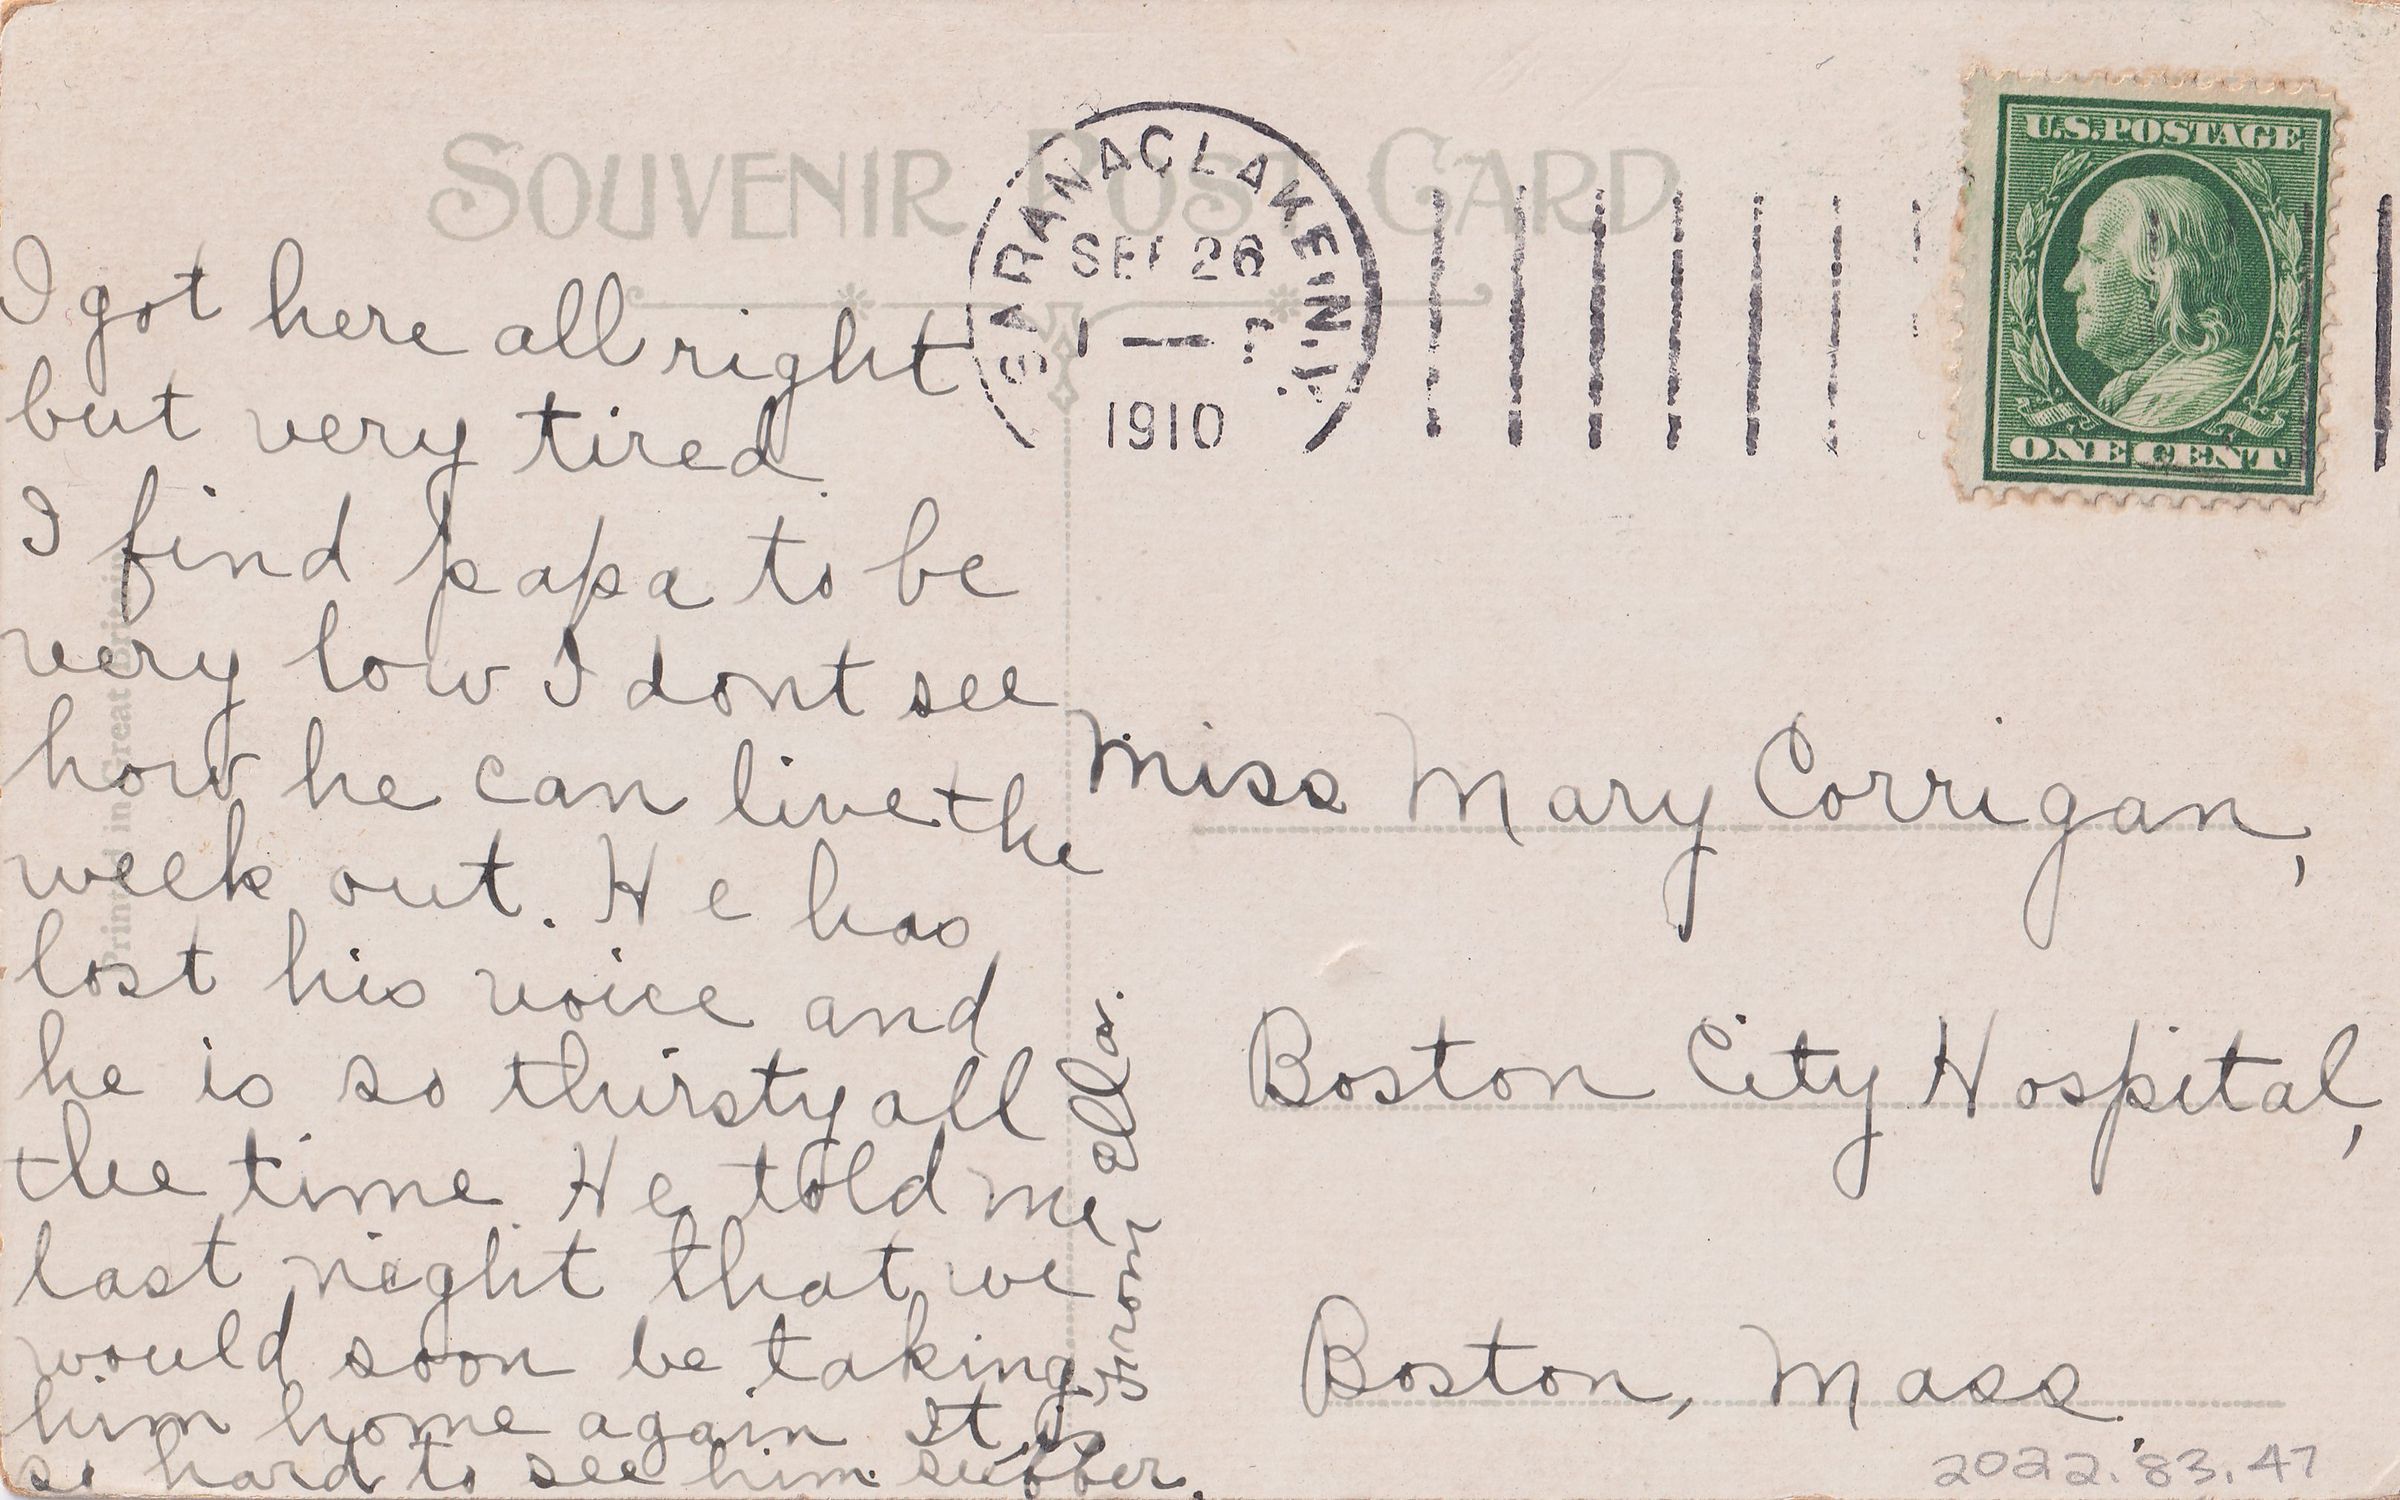 SOUVENIR POST CARD
SARANAC LAKE, N.Y.
SEP 26
1910
U.S. POSTAGE
ONE CENT
I got here all right
but very tired.
I find papa to be
very low I dont see
how he can live the
week out. He has
lost his voice and
he is so thirsty all
the time. He told me
last night that we
would soon be taking
him home again It is
so hard to see him suffer.
From Ella.
Printed in Great Britain
Miss Mary Corrigan,
Boston City Hospital,
Boston, Mass.
2022.83.47